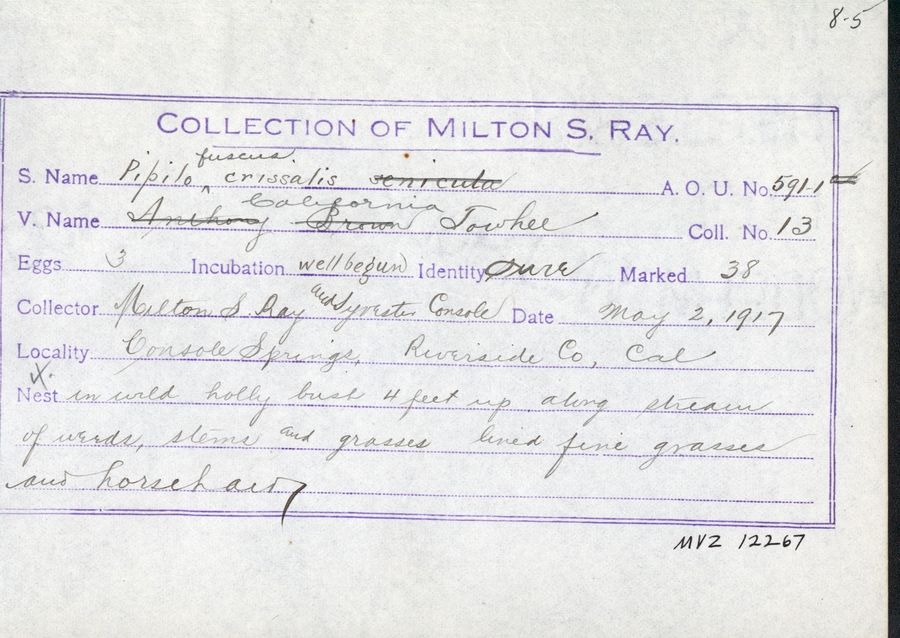 8-5
COLLECTION OF MILTON S. RAY.
fuscus
S. Name Pipilo ^ crissalis senicula A. O. U. No. 591-1
California
V. Name Anthony Brown Towhee Coll. No. 13
Eggs 3 Incubation well begun Identity sure Marked 38
Collector Milton S. Ray and Sylvester Console Date May 2, 1917
Locality Console Springs, Riverside Co, Cal
X.
Nest in wild holly bush 4 feet up along stream
of weeds, stems and grasses lined fine grasses
and horsehair
MVZ 12267